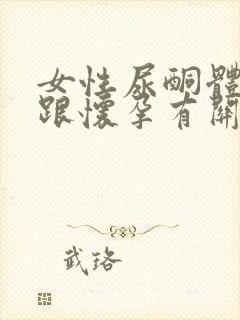 女性尿酮體
跟懷孕有關
武珞